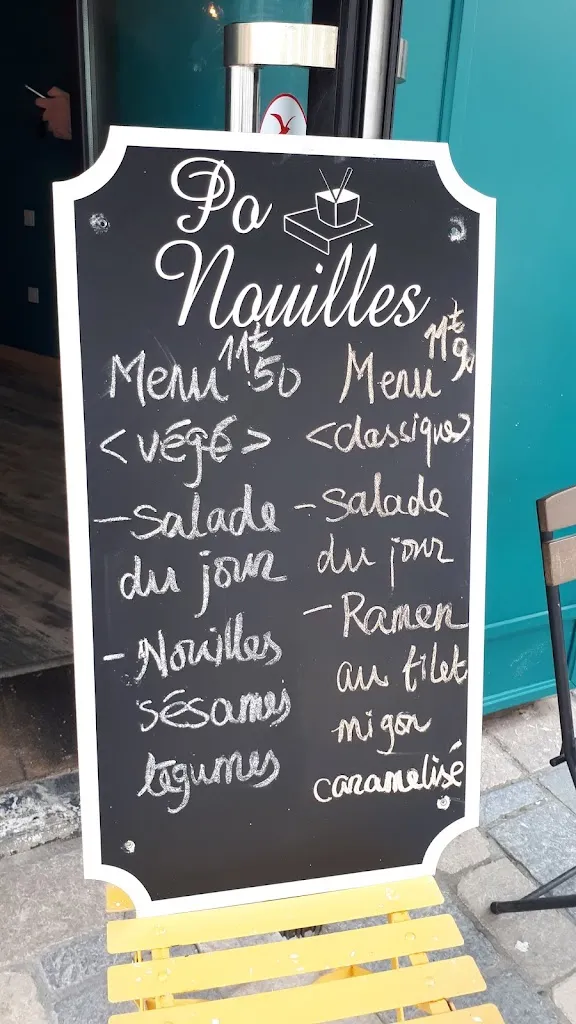 Po
Nouilles
Menu 11€50
<végé>
-salade
du jour
-Nouilles
sésames
légumes
Menu 11€90
<classique>
-salade
du jour
-Ramen
au filet
migon
caramelisé